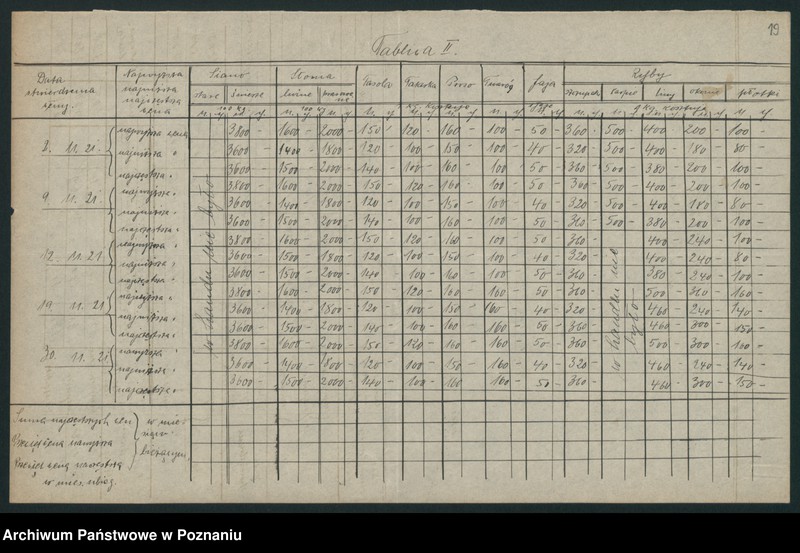 19
Tabela II.
Data
stwierdzenia
ceny.
Najwyższa
najniższa
najczęstsza
cena
Siano Słoma Fasola Tatarka Proso Twaróg Jaja Ryby
stare świeże luźne szczupak karpie liny okonie
2. 11. 21. najwyższa cena 3800 - 1600 - 2000 - 150 - 120 - 160 - 100 - 50 - 360 - 500 - 400 - 200 - 100 -
najniższa " 3600 - 1400 - 1800 - 120 - 100 - 150 - 100 - 40 - 320 - 500 - 400 - 180 - 80 -
najczęstsza " 3600 - 1500 - 2000 - 140 - 100 - 160 - 100 - 50 - 360 - 500 - 380 - 200 - 100 -
9. 11. 21. najwyższa " 3800 - 1600 - 2000 - 150 - 120 - 160 - 100 - 50 - 300 - 500 - 400 - 200 - 100 -
najniższa " 3600 - 1400 - 1800 - 120 - 100 - 150 - 100 - 40 - 320 - 500 - 400 - 180 - 80 -
najczęstsza " 3600 - 1500 - 2000 - 140 - 100 - 160 - 100 - 50 - 360 - 500 - 380 - 200 - 100 -
12. 11. 21. najwyższa " 3800 - 1600 - 2000 - 150 - 120 - 160 - 100 - 50 - 360 - 400 - 240 - 100 -
najniższa " 3600 - 1500 - 1800 - 120 - 100 - 150 - 100 - 40 - 320 - 400 - 240 - 80 -
najczęstsza " 3600 - 1500 - 2000 - 140 - 100 - 160 - 100 - 50 - 360 - 380 - 240 - 100 -
19. 11. 21. najwyższa " 3800 - 1600 - 2000 - 150 - 120 - 160 - 160 - 50 - 360 - 500 - 360 - 160 -
najniższa " 3600 - 1400 - 1800 - 120 - 100 - 150 - 160 - 40 - 320 - 460 - 240 - 140 -
najczęstsza " 3600 - 1500 - 2000 - 140 - 100 - 160 - 160 - 50 - 360 - 460 - 300 - 150 -
30. 11. 21. najwyższa " 3800 - 1600 - 2000 - 150 - 120 - 160 - 160 - 50 - 360 - 500 - 300 - 100 -
najniższa " 3600 - 1400 - 1800 - 120 - 100 - 150 - 160 - 40 - 320 - 460 - 240 - 140 -
najczęstsza " 3600 - 1500 - 2000 - 140 - 100 - 160 - 100 - 50 - 360 - 460 - 300 - 150 -
w handlu nie było
w handlu nie było
Suma najczęstszych cen w mie-
Przeciętna najwyższa
bieżącym.
cena najczęstsza
w mies. ubieg.
Archiwum Państwowe w Poznaniu